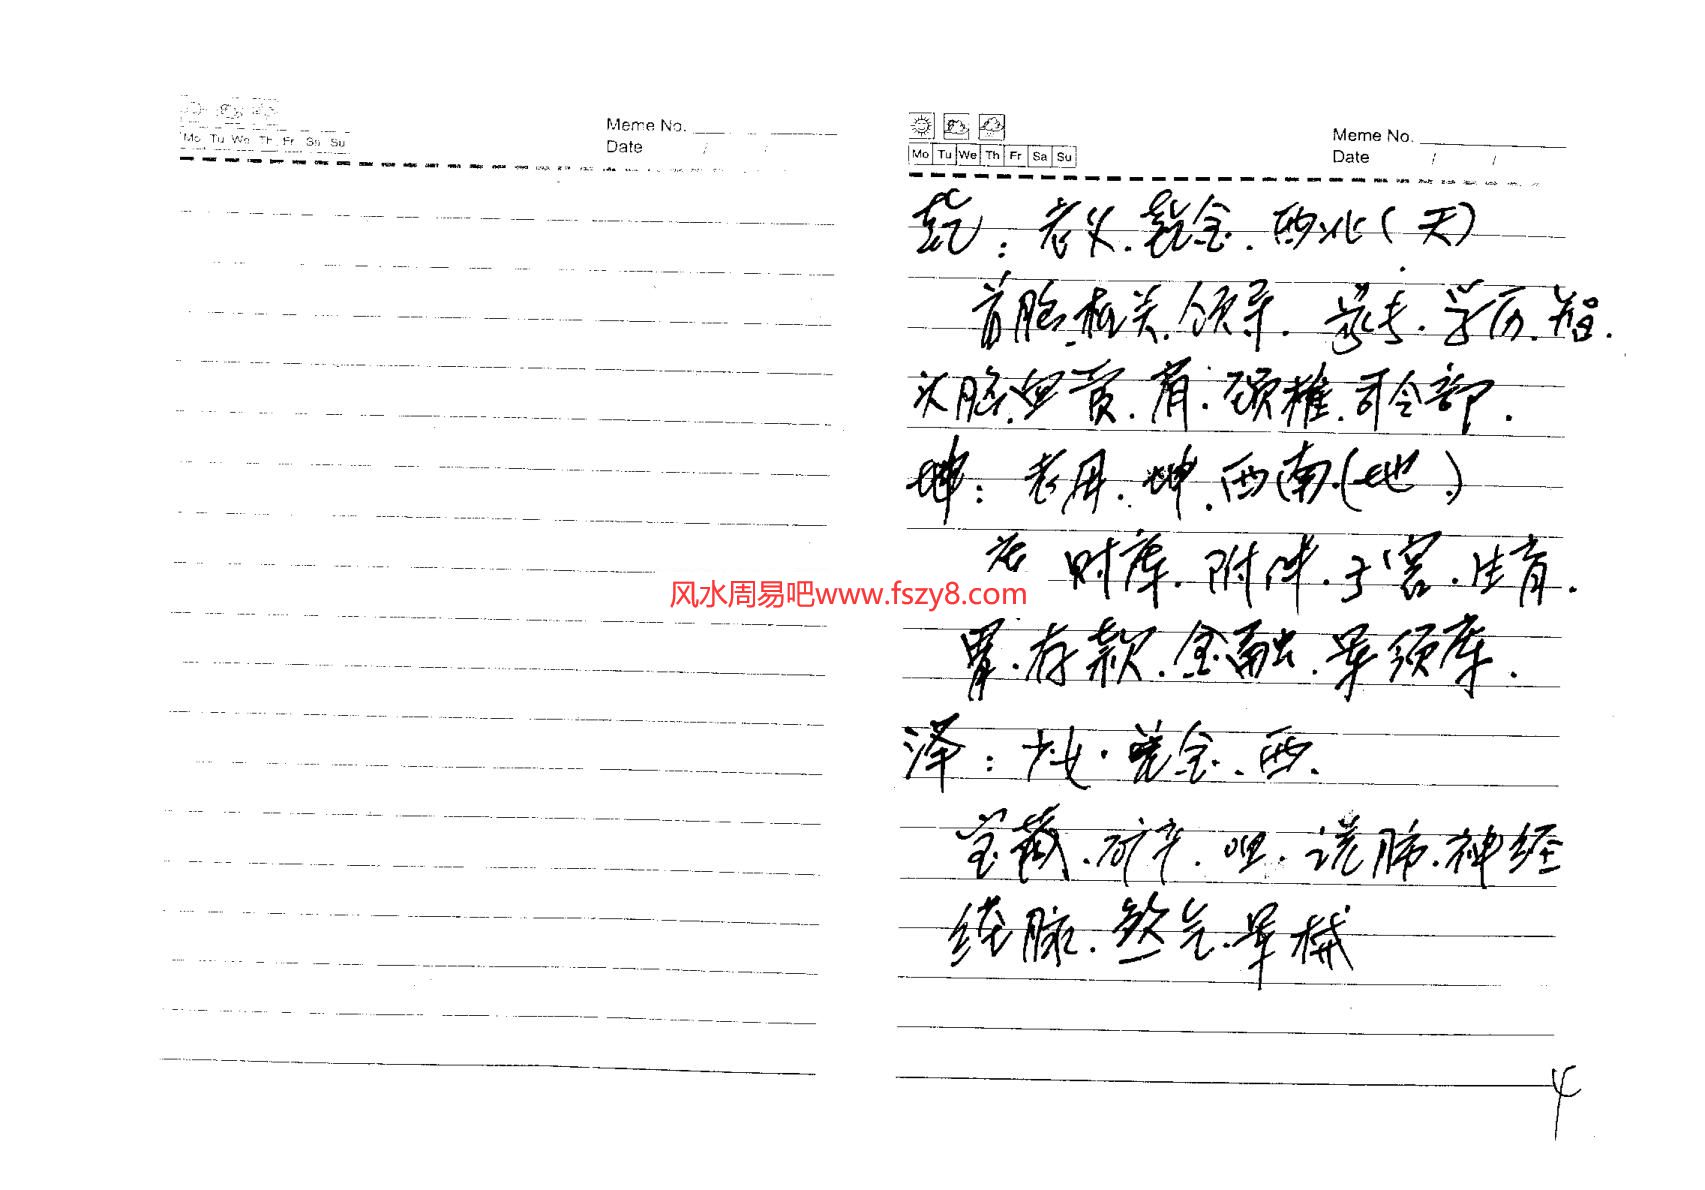 Mo Tu We Th Fr Sa Su
Meme No.
Date / /
Mo Tu We Th Fr Sa Su
Meme No.
Date / /
乾：老父.乾金.西北(天)
首脑.机关.领导.学历.
头脑.肓.颈椎.司令部.
坤：老母.坤.西南.(地.)
左 财库.附件.子宫.生育.
胃.存款.金融.军须库.
泽：少女.兑金.西.
宝藏.矿产.咽.说肺.神经
线脉.煞气.军械
4
风水周易吧www.fszy8.com